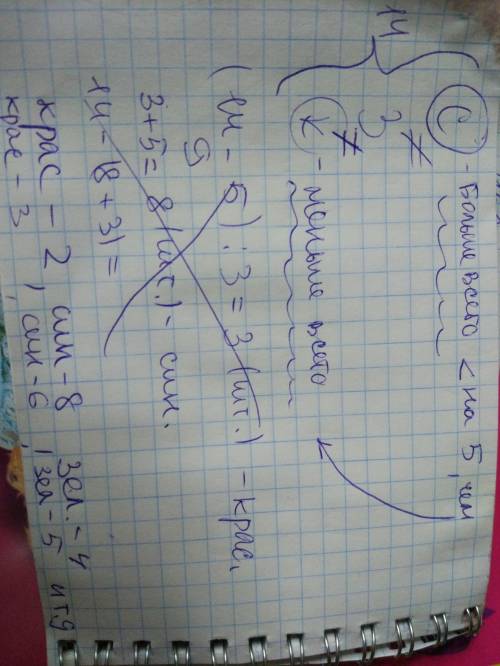 С - Больше всего < на 5, чем
14 { З
К - меньше всего
(14 - 5) : 3 = 3 (шт.) - крас.
9
3 + 5 = 8 (шт.) - син.
14 - (8 + 3) =
крас - 2, син - 8 зел. - 4
крас - 3, син - 6, зел - 5 и т д